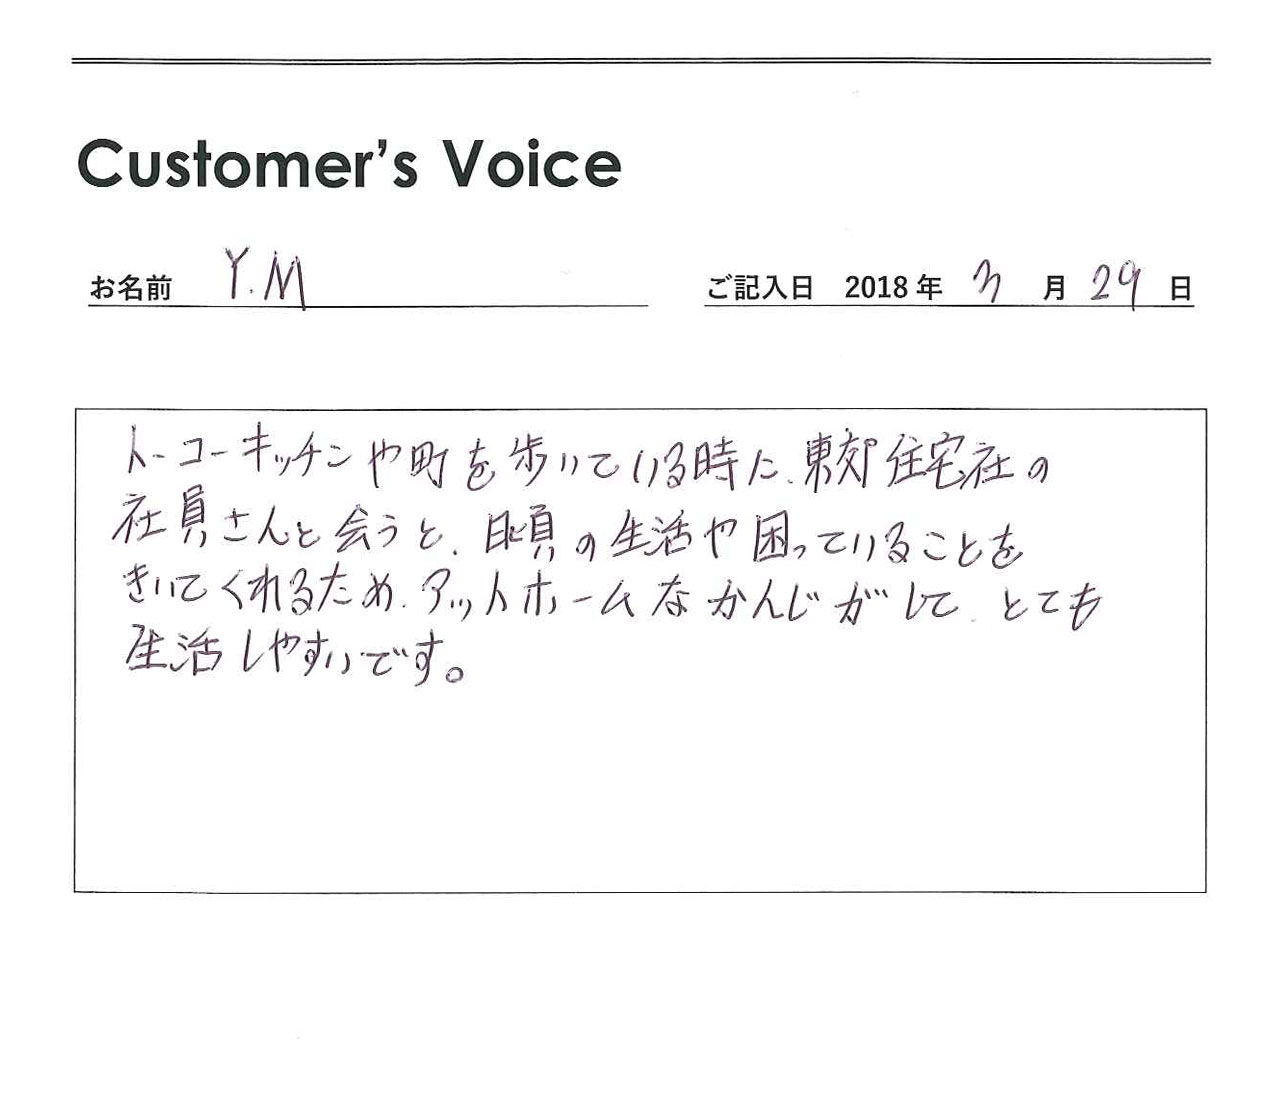 Customer's Voice
お名前 Y.M
ご記入日 2018年 3月 29日
トーコーキッチンや町を歩いている時に、東郊住宅社の
社員さんと会うと、日頃の生活や困っていることを
きいてくれるため、アットホームなかんじがして、とても
生活しやすいです。